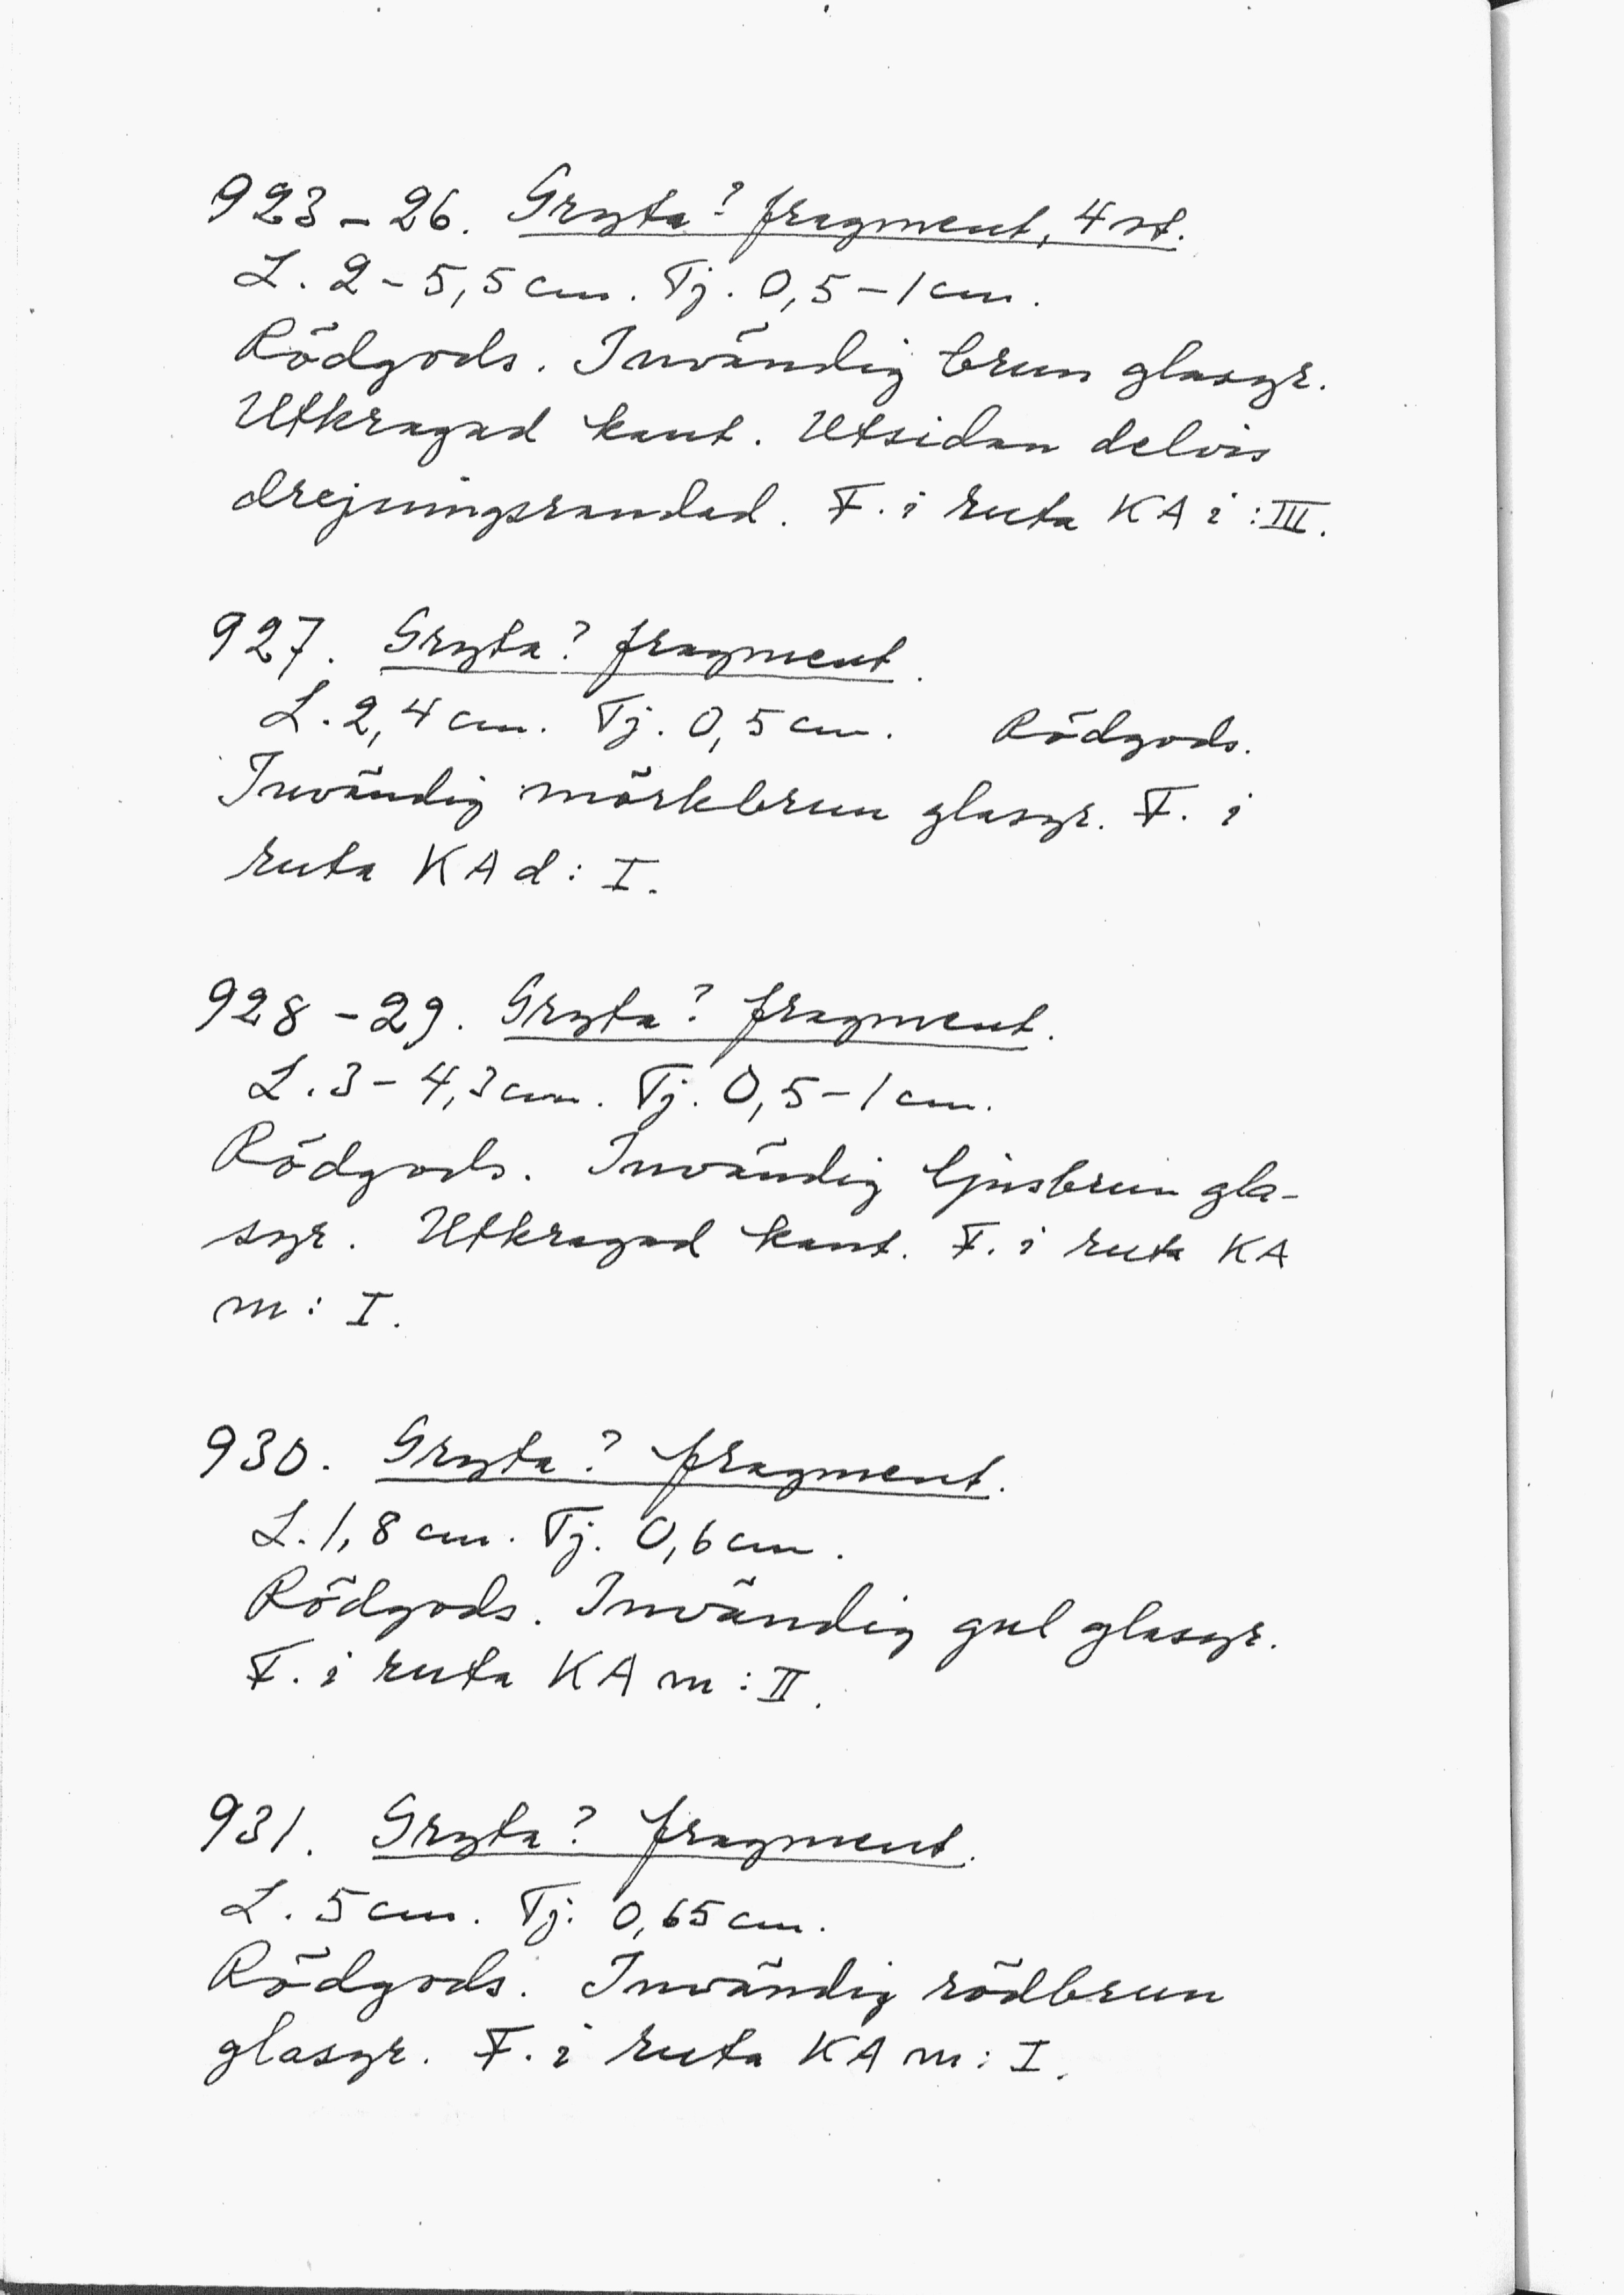 923-26. Gryta? fragment, 4 st.
L. 2-5,5 cm. Tj. 0,5-1 cm.
Rödgods. Invändig brun glasyr.
Utkragad kant. Utsidan delvis
drejningsrandad. F. i ruta KA i:III.
927. Gryta? fragment.
L. 2,4 cm. Tj. 0,5 cm. Rödgods.
Invändig mörkbrun glasyr. F. i
ruta KA d: I.
928-29. Gryta? fragment.
L. 3-4,3 cm. Tj. 0,5-1 cm.
Rödgods. Invändig ljusbrun gla-
syr. Utkragad kant. F. i ruta KA
m: I.
930. Gryta? fragment.
L. 1,8 cm. Tj. 0,6 cm.
Rödgods. Invändig gul glasyr.
F. i ruta KA m:II.
931. Gryta? fragment.
L. 5 cm. Tj. 0,65 cm.
Rödgods. Invändig rödbrun
glasyr. F. i ruta KA m: I.